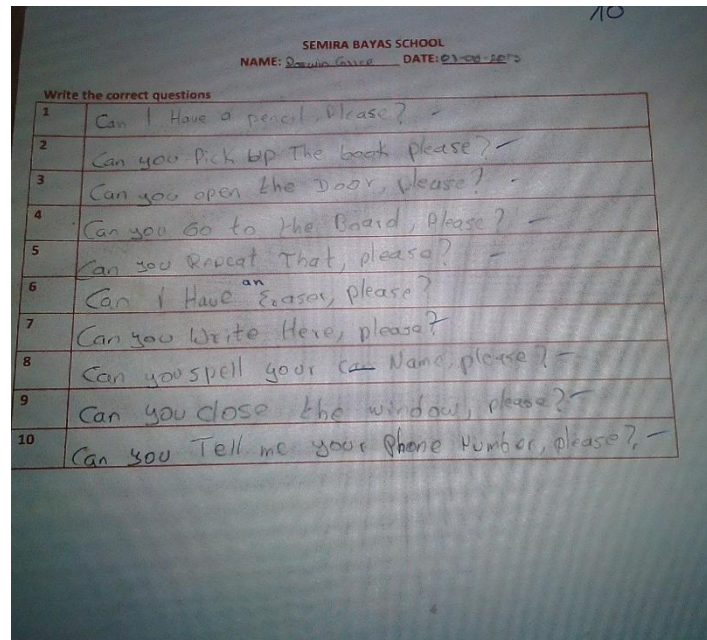 10
SEMIRA BAYAS SCHOOL
NAME: DATE:
Write the correct questions
1 Can I Have a pencil, please?
2 Can you Pick Up The book please?
3 Can you open the Door, please?
4 Can you Go to the Board, Please?
5 Can you Repeat That, please?
6 Can I Have an Eraser, please?
7 Can you Write Here, please?
8 Can you spell your Name, please?
9 Can you close the window, please?
10 Can you Tell me your Phone Number, please?